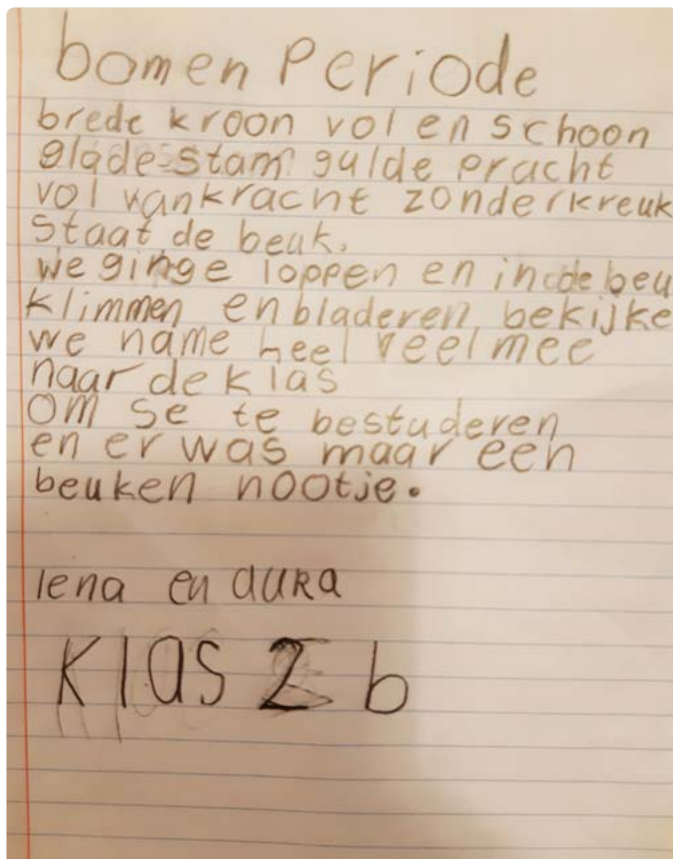 bomen Periode
brede kroon vol en schoon
glade stam gulde pracht
vol vankracht zonderkreuk
staat de beuk.
we ginge loppen en in de beu
klimmen enbladeren bekijke
we name heel veel mee
naar de klas
om se te bestuderen
en er was maar een
beuken nootje.
lena en aura
Klas 2 b